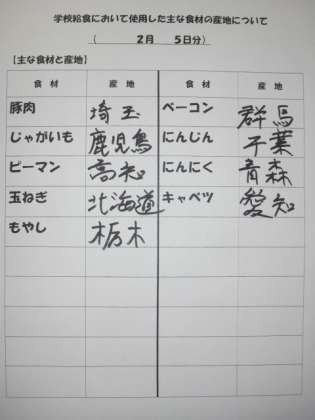 学校給食において使用した主な食材の産地について
(　2月　5日分)
【主な食材と産地】
食 材　産 地　食 材　産 地
豚肉　埼玉　ベーコン　群馬
じゃがいも　鹿児島　にんじん　千葉
ピーマン　高知　にんにく　青森
玉ねぎ　北海道　キャベツ　愛知
もやし　栃木